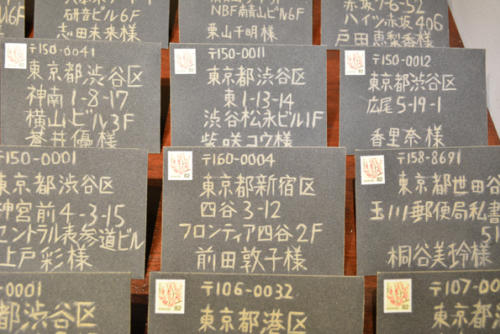 研音ビル6F
志田未来様
NBF南青山ビル6F
栗山千明様
赤坂7-6-52
ハイツ赤坂406
戸田恵梨香様
〒150-0041
東京都渋谷区
神南1-8-17
横山ビル3F
蒼井優様
〒150-0011
東京都渋谷区
東1-13-14
渋谷松永ビル1F
柴咲コウ様
〒150-0012
東京都渋谷区
広尾5-19-1
香里奈様
〒150-0001
東京都渋谷区
神宮前4-3-15
セントラル表参道ビル
上戸彩様
〒160-0004
東京都新宿区
四谷3-12
フロンティア四谷2F
前田敦子様
〒158-8691
東京都世田谷
玉川郵便局私書
51
桐谷美玲様
-0001
都渋谷区
〒106-0032
東京都港区
〒107-00
東京都